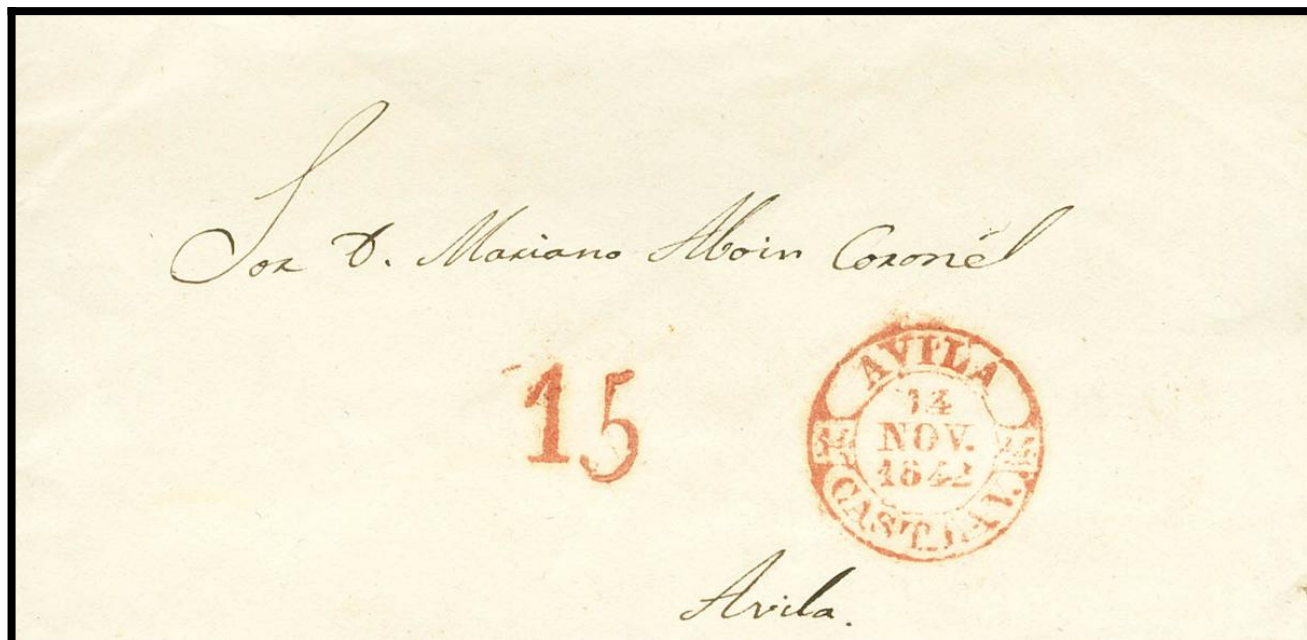 Sor D. Mariano Aboin Coronél
15
AVILA
14
NOV.
1842
CAST.LA V.
Avila.